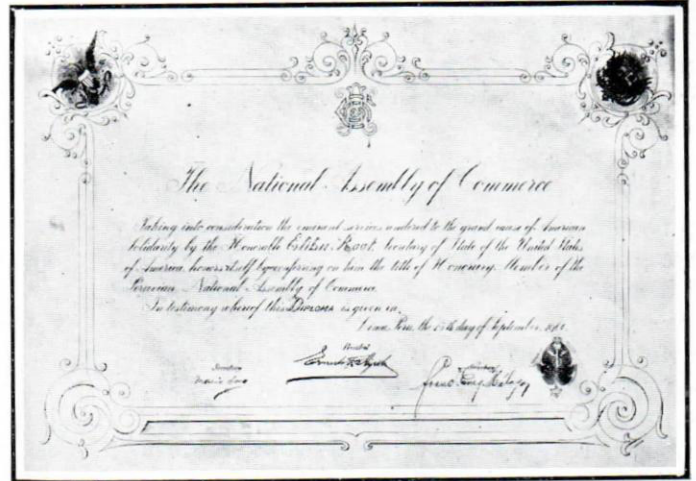 The National Assembly of Commerce
Taking into consideration the eminent services rendered to the grand cause of American
Solidarity by the Honorable Elihu Root, Secretary of State of the United States
of America, honors itself by conferring on him the title of Honorary Member of the
Peruvian National Assembly of Commerce.
In testimony whereof this Diploma is given in
Lima, Peru, the day of September,